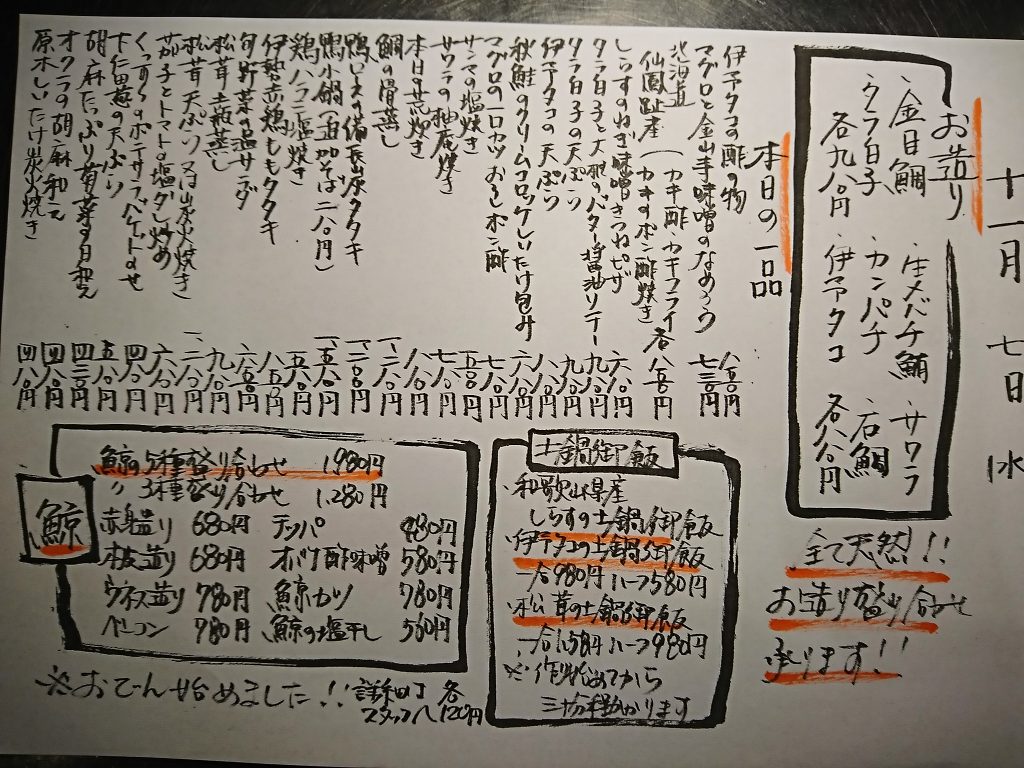 十一月 七日 水
お造り
・金目鯛 ・生メバチ鮪 ・サワラ
・タラ白子 ・カンパチ ・石鯛
各九八〇円 ・伊予タコ 各八八〇円
全て天然!!
お造り盛り合わせ
承ります!!
本日の一品
伊予タコの酢の物 八五〇円
マグロと金山寺味噌のなめろう 七三〇円
北海道
仙鳳趾産(カキ酢 カキフライ
カキのポン酢焼き) 各八五〇円
しらすのねぎ味噌きつねピザ 六八〇円
タラ白子と大根のバタ醤油ソテー 九八〇円
タラ白子の天ぷら 九八〇円
伊予タコの天ぷら 八八〇円
秋鮭のクリームコロッケしいたけ包み 六八〇円
マグロの一口カツおろしポン酢 七八〇円
サワラの柚庵焼き
サンマの塩焼き
本日の荒炊き 八八〇円
鯛の骨蒸し
鶏ハラミ塩焼き
伊勢赤鶏ももタタキ
旬野菜の温サラダ
松茸土瓶蒸し
松茸天ぷら 又は炭火焼き
茄子とトマトの塩ダレ炒め
下仁田葱の天ぷら
胡麻たっぷり春菊の白和え
オクラの胡麻和え 四八〇円
原木しいたけ炭火焼き 四八〇円
土鍋御飯
・和歌山県産
しらすの土鍋御飯
・伊予タコの土鍋御飯
一合980円 ハーフ580円
・松茸の土鍋御飯
一合1,580円 ハーフ980円
※作り始めてから
三十分程かかります
鯨
鯨の5種盛り合わせ 1,980円
〃 3種盛り合わせ 1,280円
赤身造り 680円 テッパ
本皮造り 680円 オバケ酢味噌 580円
ウネス造り 780円 鯨カツ 780円
ベーコン 780円 鯨の塩干し 560円
※おでん始めました!! 詳細は
スタッフへ 各120円